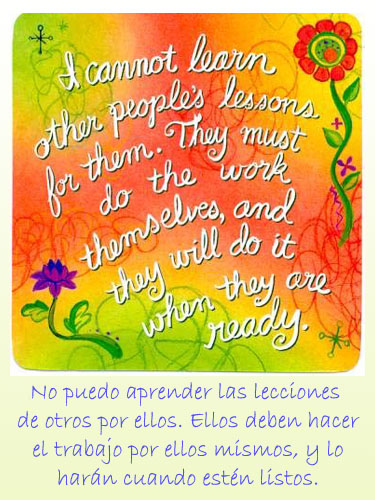 I cannot learn
other people's lessons
for them. They must
do the work
themselves, and
they will do it
when they are
ready.
No puedo aprender las lecciones
de otros por ellos. Ellos deben hacer
el trabajo por ellos mismos, y lo
harán cuando estén listos.